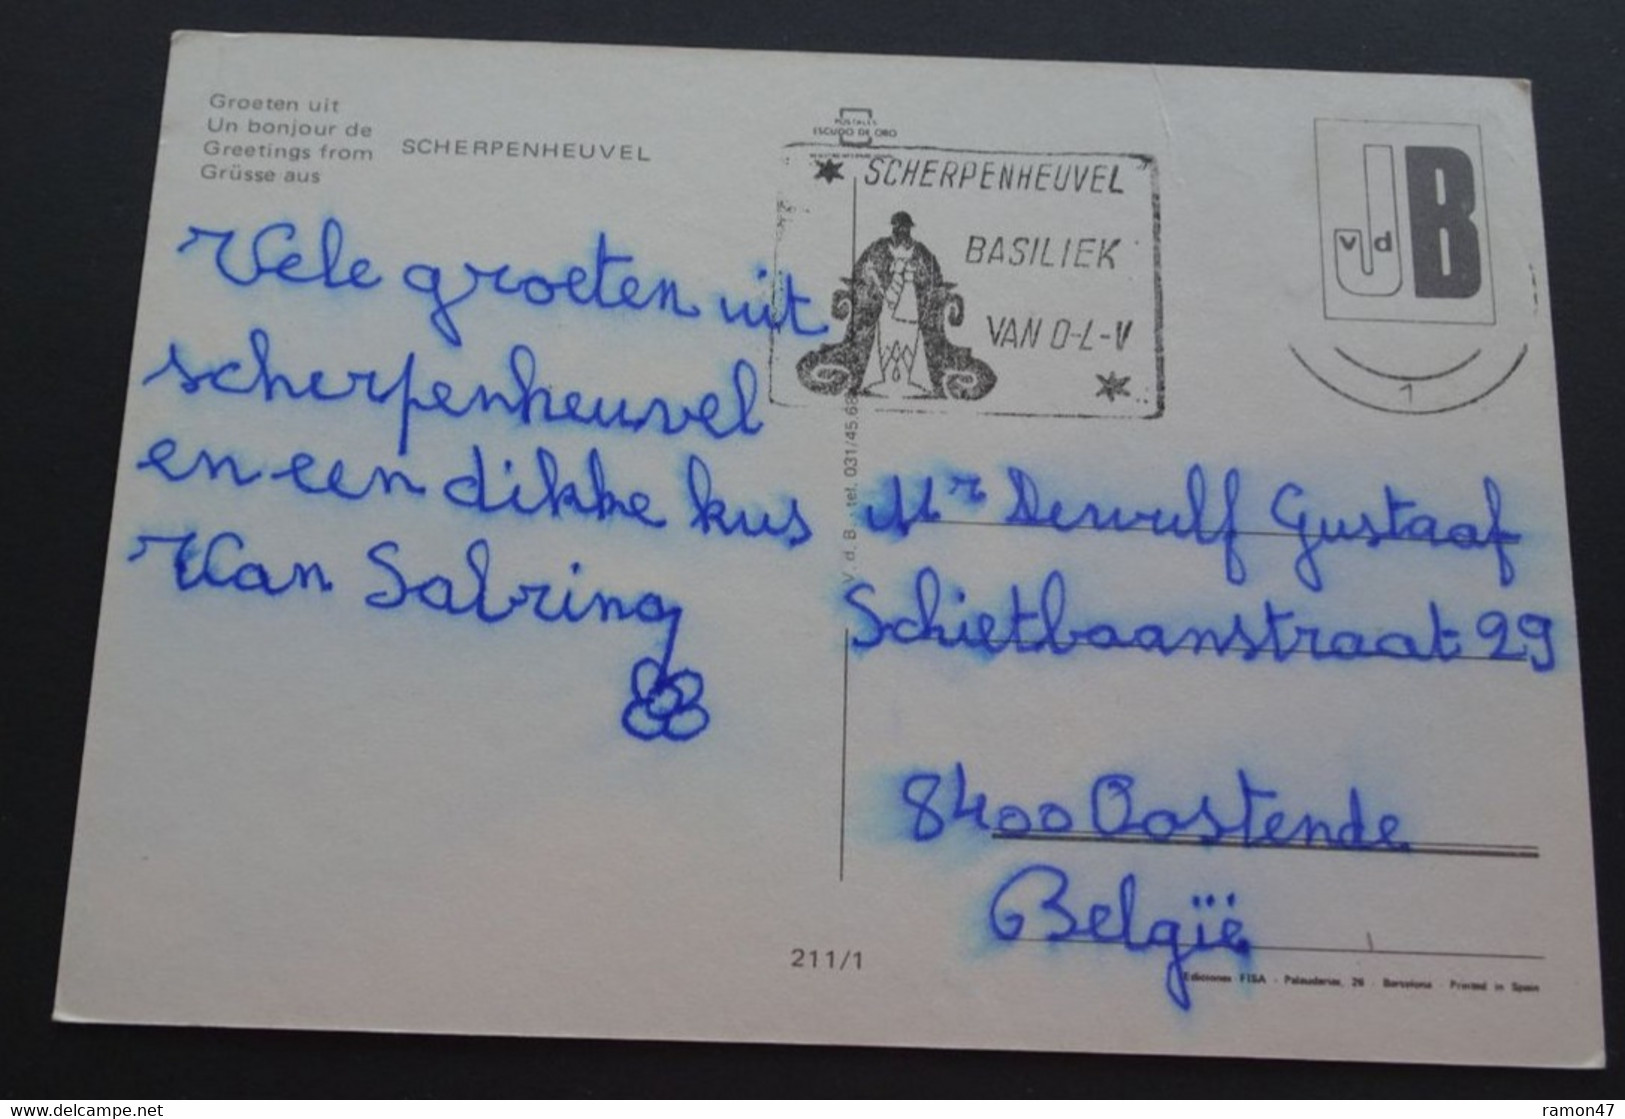 Groeten uit
Un bonjour de
Greetings from
Grüsse aus
SCHERPENHEUVEL
Vele groeten uit
scherpenheuvel
en een dikke kus
Van Sabrina
POSTALES
ESCUDO DE ORO
SCHERPENHEUVEL
BASILIEK
VAN O-L-V
J B
v d
1
V. d. B. - tel. 031/45.68
Mr Dewulf Gustaaf
Schietbaanstraat 29
8400 Oostende
België
211/1
Ediciones FISA - Palaudarias, 26 - Barcelona - Printed in Spain
delcampe.net
ramon47